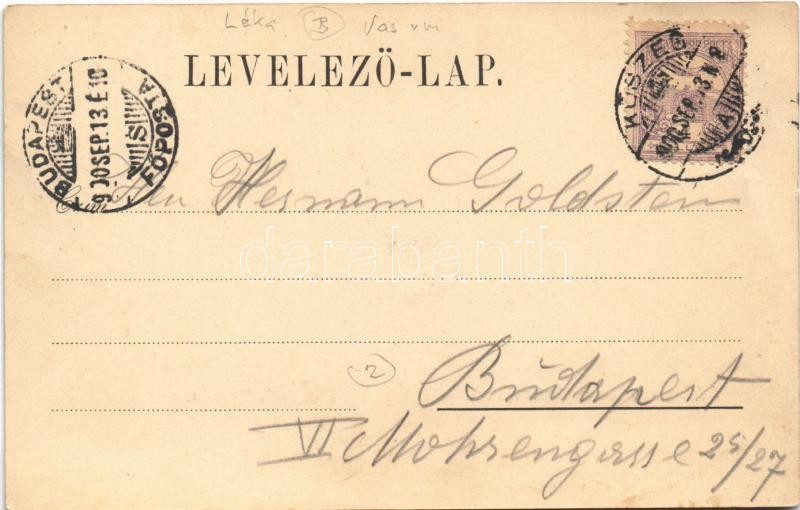 Léka B Vas vm
LEVELEZŐ-LAP.
BUDAPEST FŐPOSTA
900 SEP. 13. É 10
KŐSZEG
900 SEP. 13. N 8
Herrn Hermann Goldstein
darabanth
2
Budapest
VI Mohrengasse 25/27